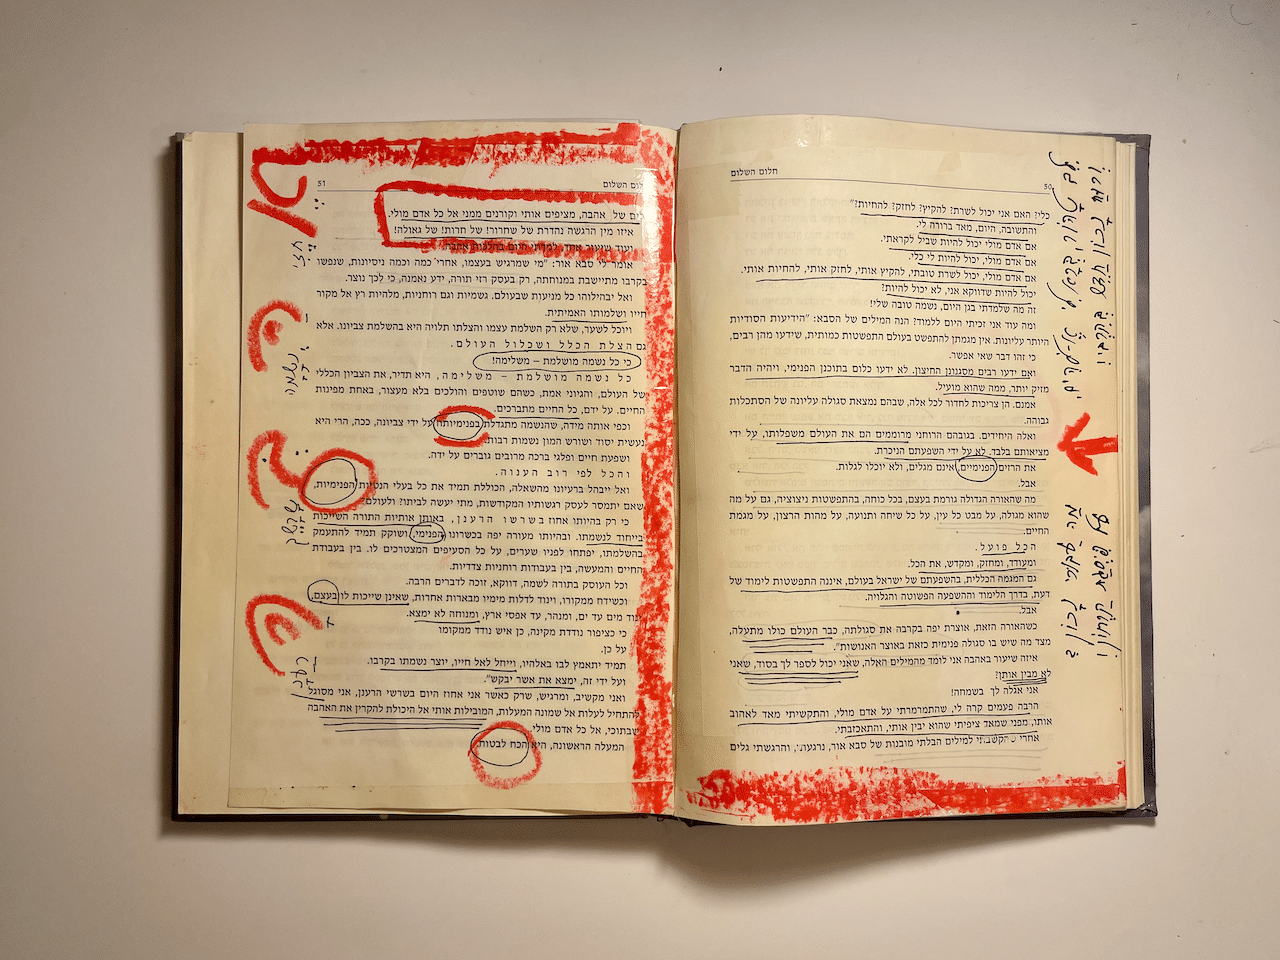 חלום השלום
50
כלי? האם אני יכול לשרת? להקיץ? לחזק? להחיות?"
והתשובה, היום, מאד ברורה לי.
אם אדם מולי יכול להיות שביל לקראתי.
אם אדם מולי, יכול להיות לי כלי.
אם אדם מולי, יכול לשרת טובתי, להקיץ אותי, לחזק אותי, להחיות אותי.
יכול להיות שדווקא אני, לא יכול להיות?
זה מה שלמדתי בגן היום, נשמה טובה שלי!
ומה עוד אני זכיתי היום ללמוד? הנה המילים של הסבא: "הידיעות הסודיות
היותר עליונות. אין מגמתן להתפשט בעולם התפשטות כמותית, שידעו מהן רבים,
כי זהו דבר שאי אפשר.
ואם ידעו רבים מסגנונן החיצון. לא ידעו כלום בתוכנן הפנימי, ויהיה הדבר
מזיק יותר, ממה שהוא מועיל.
אמנם. הן צריכות לחדור לכל אלה, שבהם נמצאת סגולה עליונה של הסתכלות
גבוהה.
ואלה היחידים. בגובהם הרוחני מרוממים הם את העולם משפלותו, על ידי
מציאותם בלבד. לא על ידי השפעתם הניכרת.
את הרזים הפנימיים, אינם מגלים, ולא יוכלו לגלות.
אבל.
מה שהאורה הגדולה גורמת בעצם, בכל כוחה, בהתפשטות ניצוציה, גם על מה
שהוא מגולה, על מבט כל עין, על כל שיחה ותנועה, על מהות הרצון, על מגמת
החיים.
הכל פועל.
ומעודד, ומחזק, ומקדש, את הכל.
גם המגמה הכללית, בהשפעתם של ישראל בעולם, איננה התפשטות לימוד של
דעת, בדרך הלימוד וההשפעה הפשוטה והגלויה.
אבל.
כשהאורה הזאת, אוצרת יפה בקרבה את סגולתה, כבר העולם כולו מתעלה,
מצד מה שיש בו סגולה פנימית כזאת באוצר האנושות".
איזה שיעור באהבה אני לומד מהמילים האלה, שאני יכול לספר לך בסוד, שאני
לא מבין אותן?
אני אגלה לך בשמחה!
הרבה פעמים קרה לי, שהתמרמרתי על אדם מולי, והתקשיתי מאד לאהוב
אותו, מפני שמאד ציפיתי שהוא יבין אותי, והתאכזבתי.
אחרי שהקשבתי למילים הבלתי מובנות של סבא אור, נרגעתי, והרגשתי גלים
השלום
51
של אהבה, מציפים אותי וקורנים ממני אל כל אדם מולי.
איזו מין הרגשה נהדרת של שחרור! של חרות! של גאולה!
ועוד שיעור אחד, למדתי היום בהלכות אהבה.
אומר לי סבא אור: "מי שמרגיש בעצמו, אחרי כמה וכמה ניסיונות, שנפשו
בקרבו מתיישבת במנוחתה, רק בעסק רזי תורה, ידע נאמנה, כי לכך נוצר.
ואל יבהילוהו כל מניעות שבעולם. גשמיות וגם רוחניות, מלהיות רץ אל מקור
חייו ושלמותו האמיתית.
ויוכל לשער, שלא רק השלמת עצמו והצלתו תלויה היא בהשלמת צביונו. אלא
גם הצלת הכלל ושכלול העולם.
כי כל נשמה מושלמת – משלימה!
כל נשמה מושלמת – משלימה, היא תדיר, את הצביון הכללי
של העולם, והגיוני אמת, כשהם שוטפים והולכים בלא מעצור, באחת מפינות
החיים. על ידם, כל החיים מתברכים.
וכפי אותה מידה, שהנשמה מתגדלת בפנימיותה על ידי צביונה, ככה, הרי היא
נעשית יסוד ושורש המון נשמות רבות
ושפעת חיים ופלגי ברכה מרובים גוברים על ידה.
והכל לפי רוב הענוה.
ואל ייבהל ברעיונו מהשאלה, הכוללת תמיד את כל בעלי הנטיות הפנימיות,
שאם יתמסר לעסק רגשותיו המקודשות, מתי יעשה לביתו? ולעולם?
כי רק בהיותו אחוז בשרשו הרענן, באותן אותיות התורה השייכות
בייחוד לנשמתו. ובהיותו מעורה יפה בכשרונו הפנימי, ושוקק תמיד להתעמק
בהשלמתו, יפתחו לפניו שערים, על כל הסעיפים המצטרכים לו. בין בעבודת
החיים והמעשה, בין בעבודות רוחניות צדדיות.
וכל העוסק בתורה לשמה, דווקא, זוכה לדברים הרבה.
וכשידח ממקורו, וינוד לדלות מימיו מבארות אחרות, שאינן שייכות לו בעצם,
ינוד מים עד ים, ומנהר, עד אפסי ארץ, ומנוחה לא ימצא.
כי כציפור נודדת מקינה, כן איש נודד ממקומו
על כן.
תמיד יתאמץ לבו באלהיו, וייחל לאל חייו, יוצר נשמתו בקרבו.
ועל ידי זה, ימצא את אשר יבקש".
ואני מקשיב, ומרגיש, שרק כאשר אני אחוז היום בשרשי הרענן, אני מסוגל
להתחיל לעלות אל שמונה המעלות, המובילות אותי אל היכולת להקרין את האהבה
שבתוכי, אל כל אדם מולי.
המעלה הראשונה, היא הכח לבטות.
נשמה